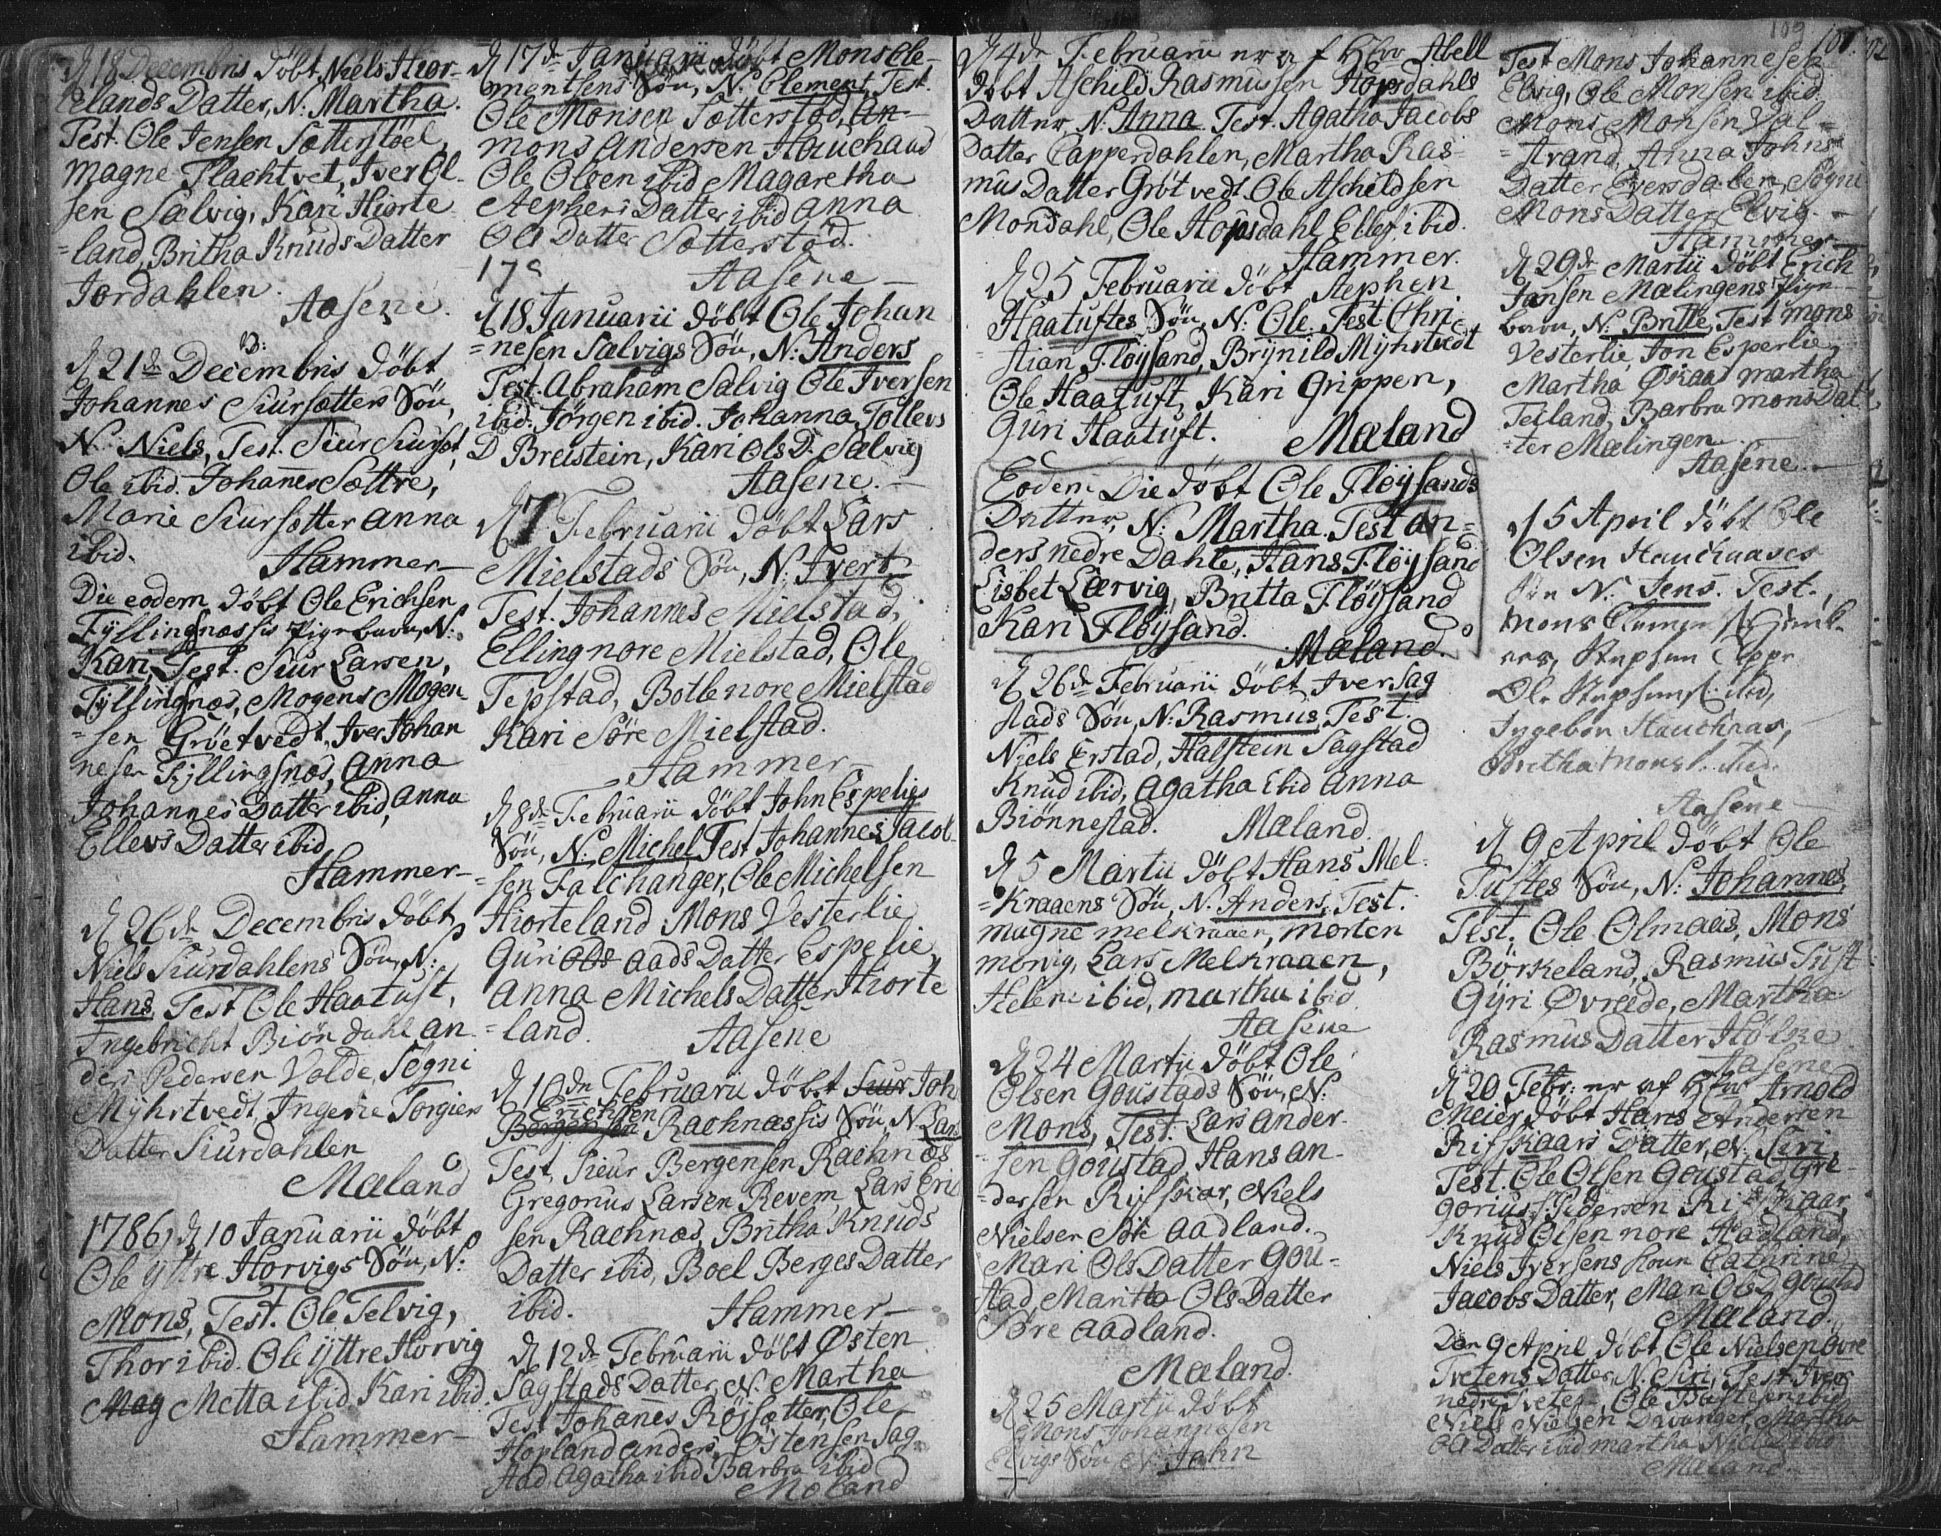 d 18 Decembris döbt Niels Hior-
telands Datter, N: Martha.
Test. Ole Jensen Sætterstöel,
Magne Flachtvet, Iver Ol-
sen Sælvig, Kari Hiorte
=land, Britha Knuds Datter
Jordahlen.
Aasene.
d 21de Decembris döbt
Johannes Siursætters Sön,
N: Niels, Test. Siur Siursæt,
Ole ibid. Johanes Sættre,
Marie Siursætter Anna
ibid.
Hammer
Die eodem döbt Ole Erichsen
Fyllingnæssis Pigebarn, N:
Kari, Test. Siur Larsen,
Fyllingnæs, Mogens Mogen
=sen Gröetvedt, Iver Johan
nesen Fyllingsnæs, Anna
Johannes Datter ibid, Anna
Ellevs Datter ibid
Hammer
d 26de Decembris döbt
Niels Siurdahlens Sön, N:
Hans, Test Ole Haatuft,
Ingebricht Biörndahl An
ders Pedersen Valde, Sögni
Myhrtvedt, Ingerie Torgiers
Datter Siurdahlen
Mæland
1786, d 10 Januarii döbt
Ole yttre Horvigs Sön, N:
Mons, Test. Ole Telvig,
Thor ibid. Ole yttre Horvig
Mag Metta ibid, Kari ibid.
Hammer
d 17de Januarii döbt Mons Cle-
mentsens Sön, N: Clement, Test.
Ole Monsen Sætterstöd, An-
mons Andersen Hauchaas
Ole Olsen ibid Magaretha
Stephens Datter ibid Anna
Ols Datter Sætterstöd.
Aasene
d 18 Januarii döbt Ole Johan
=nesen Sælvigs Sön, N: Anders
Test. Abraham Salvig Ole Iversen
ibid. Jörgen ibid. Johanna Tollevs
D Breistein, Kari Ols D. Salvig
Aasene.
d 7 Februarii döbt Lars
Mielstads Sön, N: Ivert
Test. Johannes Mielstad,
Elling nore Mielstad, Ole
Tepstad, Botle nore Mielstad
Kari Söre Mielstad.
Hammer
d 8de Februarii döbt John Espelies
Sön, N: Michel Test Johannes Jacob-
=sen Falchanger, Ole Michelsen
Hiorteland. Mons Vesterlie
Guri Ols Aads Datter Espelie
Anna Michels Datter Hiorte
=land.
Aasene
d 10de Februarii döbt Siur Joh
Erichsen
Bergersen Rachnæssis Sön N Lars
Test. Sieur Bergensen Rachnæs
Gregorius Larsen Revem, Lars Eric
sen Rachnæs, Britha Knuds
Datter ibid, Boel Berges Datter
ibid.
Hammer
d 12de Februarii döbt Östen
Sagstads Datter, N: Martha
Test Johanes Röjsætter, Ole
Hopland Anders Östensen Sag
stad Agatha ibid Barbra ibid
Mæland
d 4de Februarii er af Hr Abell
Döbt Aschild Rasmussen Hopsdahls
Datter N. Anna Test. Agatha Jacobs
Datter Capperdahlen, Martha Ras-
mus Datter Grötvedt. Ole Aschildsen
Mondahl, Ole Hopsdahl Ellef. ibid.
Hammer.
d 25 Februarii döbt Stephen
Haatuftes Sön, N: Ole. Test Chri-
=stian Flöysand, Brynild Myhrtvedt
Ole Haatuft, Kari Grippen,
Guri Haatuft.
Mæland
Eodem Die döbt Ole Flöysands
Datter, N: Martha. Test An=
ders nedre Dahle, Hans Flöysand
Lisbet Lærvig, Britta Flöysand
Kari Flöysand.
Mæland.
d 26de Februarii döbt Iver Sag
stads Sön, N: Rasmus, Test.
Niels Erstad, Halstein Sagstad
Knud ibid, Agatha ibid Anna
Biönnestad.
Mæland.
d 5 Martii döbt Hans Mel-
=Kraaens Sön, N. Anders, Test.
Magne Melkraaen, Morten
Morvig, Lars Melkraaen,
Helene ibid, Martha ibid
Aasene
d 24 Martii döbt Ole
Olsen Goustads Sön, N:
Mons, Test. Lars Ander-
sen Goustad, Hans An-
=dersen Rifskar, Niels
Nielsen Söre Aadland.
Mari Ols Datter Gou-
stad, Marita Ols Datter
Söre Aadland.
Mæland.
d 25 Martii döbt
Mons Johannesen
Elvigs Sön N: John
109
Test Mons Johannesen
Elvig, Ole Monsen ibid.
Mons Monsen Val=
=strand, Anna Johns
Datter Eversdalen, Sögni
Mons Datter Elvig.
Hammer
d 29de Martii döbt Erich
Jansen Mælingens Pige-
barn, N: Britte, Test Mons
Vesterlie, Jon Esperlie,
Martha Økaas Martha
Teiland, Barbra Mons Dat
=ter Mælingen
Aasene.
d 5 April döbt Ole
Olsen Hauchaases
Sön N: Jens. Test.,
Mons
Ole ibid,
Ingebor Hauchaas,
Britha Mons ibid.
Aasene
d 9 April döbt Ole
Tuftes Sön, N: Johannes,
Test. Ole Olmaas, Mons
Börkeland, Rasmus Tuft
Gyri Øvrede, Martha
Rasmus Datter
Aasene
d 20 Febr: er af Hr Arnold
Meier, döbt Hans Andersen
Rifskaars Datter, N: Siri,
Test. Ole Olsen Goustad, Gre-
gorius Pedersen Rifskaar,
Knud Olsen nore Hadland,
Niels Iversens Koun Cathrine
Jacobs Datter, Mari Ols D. Goustad
Mæland.
Den 9 April döbt Ole Nielsen Øvre
Tvetens Datter, N. Siri, Test Iver
nedre Tveten, Ole ibid
Niels Nielsen Davanger, Martha
Ols Datter ibid Martha Niels D ibid
Mæland